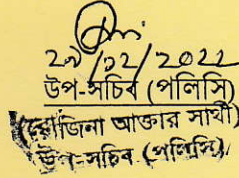 ২৯/১২/২০২২
উপ-সচিব (পলিসি)
(রোজিনা আক্তার সাথী)
উপ-সচিব (পলিসি)